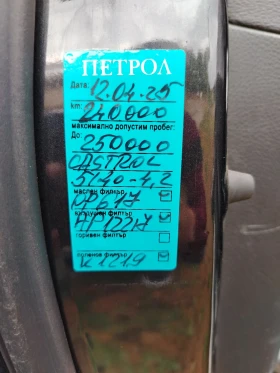 ПЕТРОЛ
Дата: 12.04.25
km: 240000
максимално допустим пробег:
До: 250000
CASTROL
5W40-4,2
маслен филтър
OP617
въздушен филтър
AP122/7
горивен филтър
поленов филтър
K1219